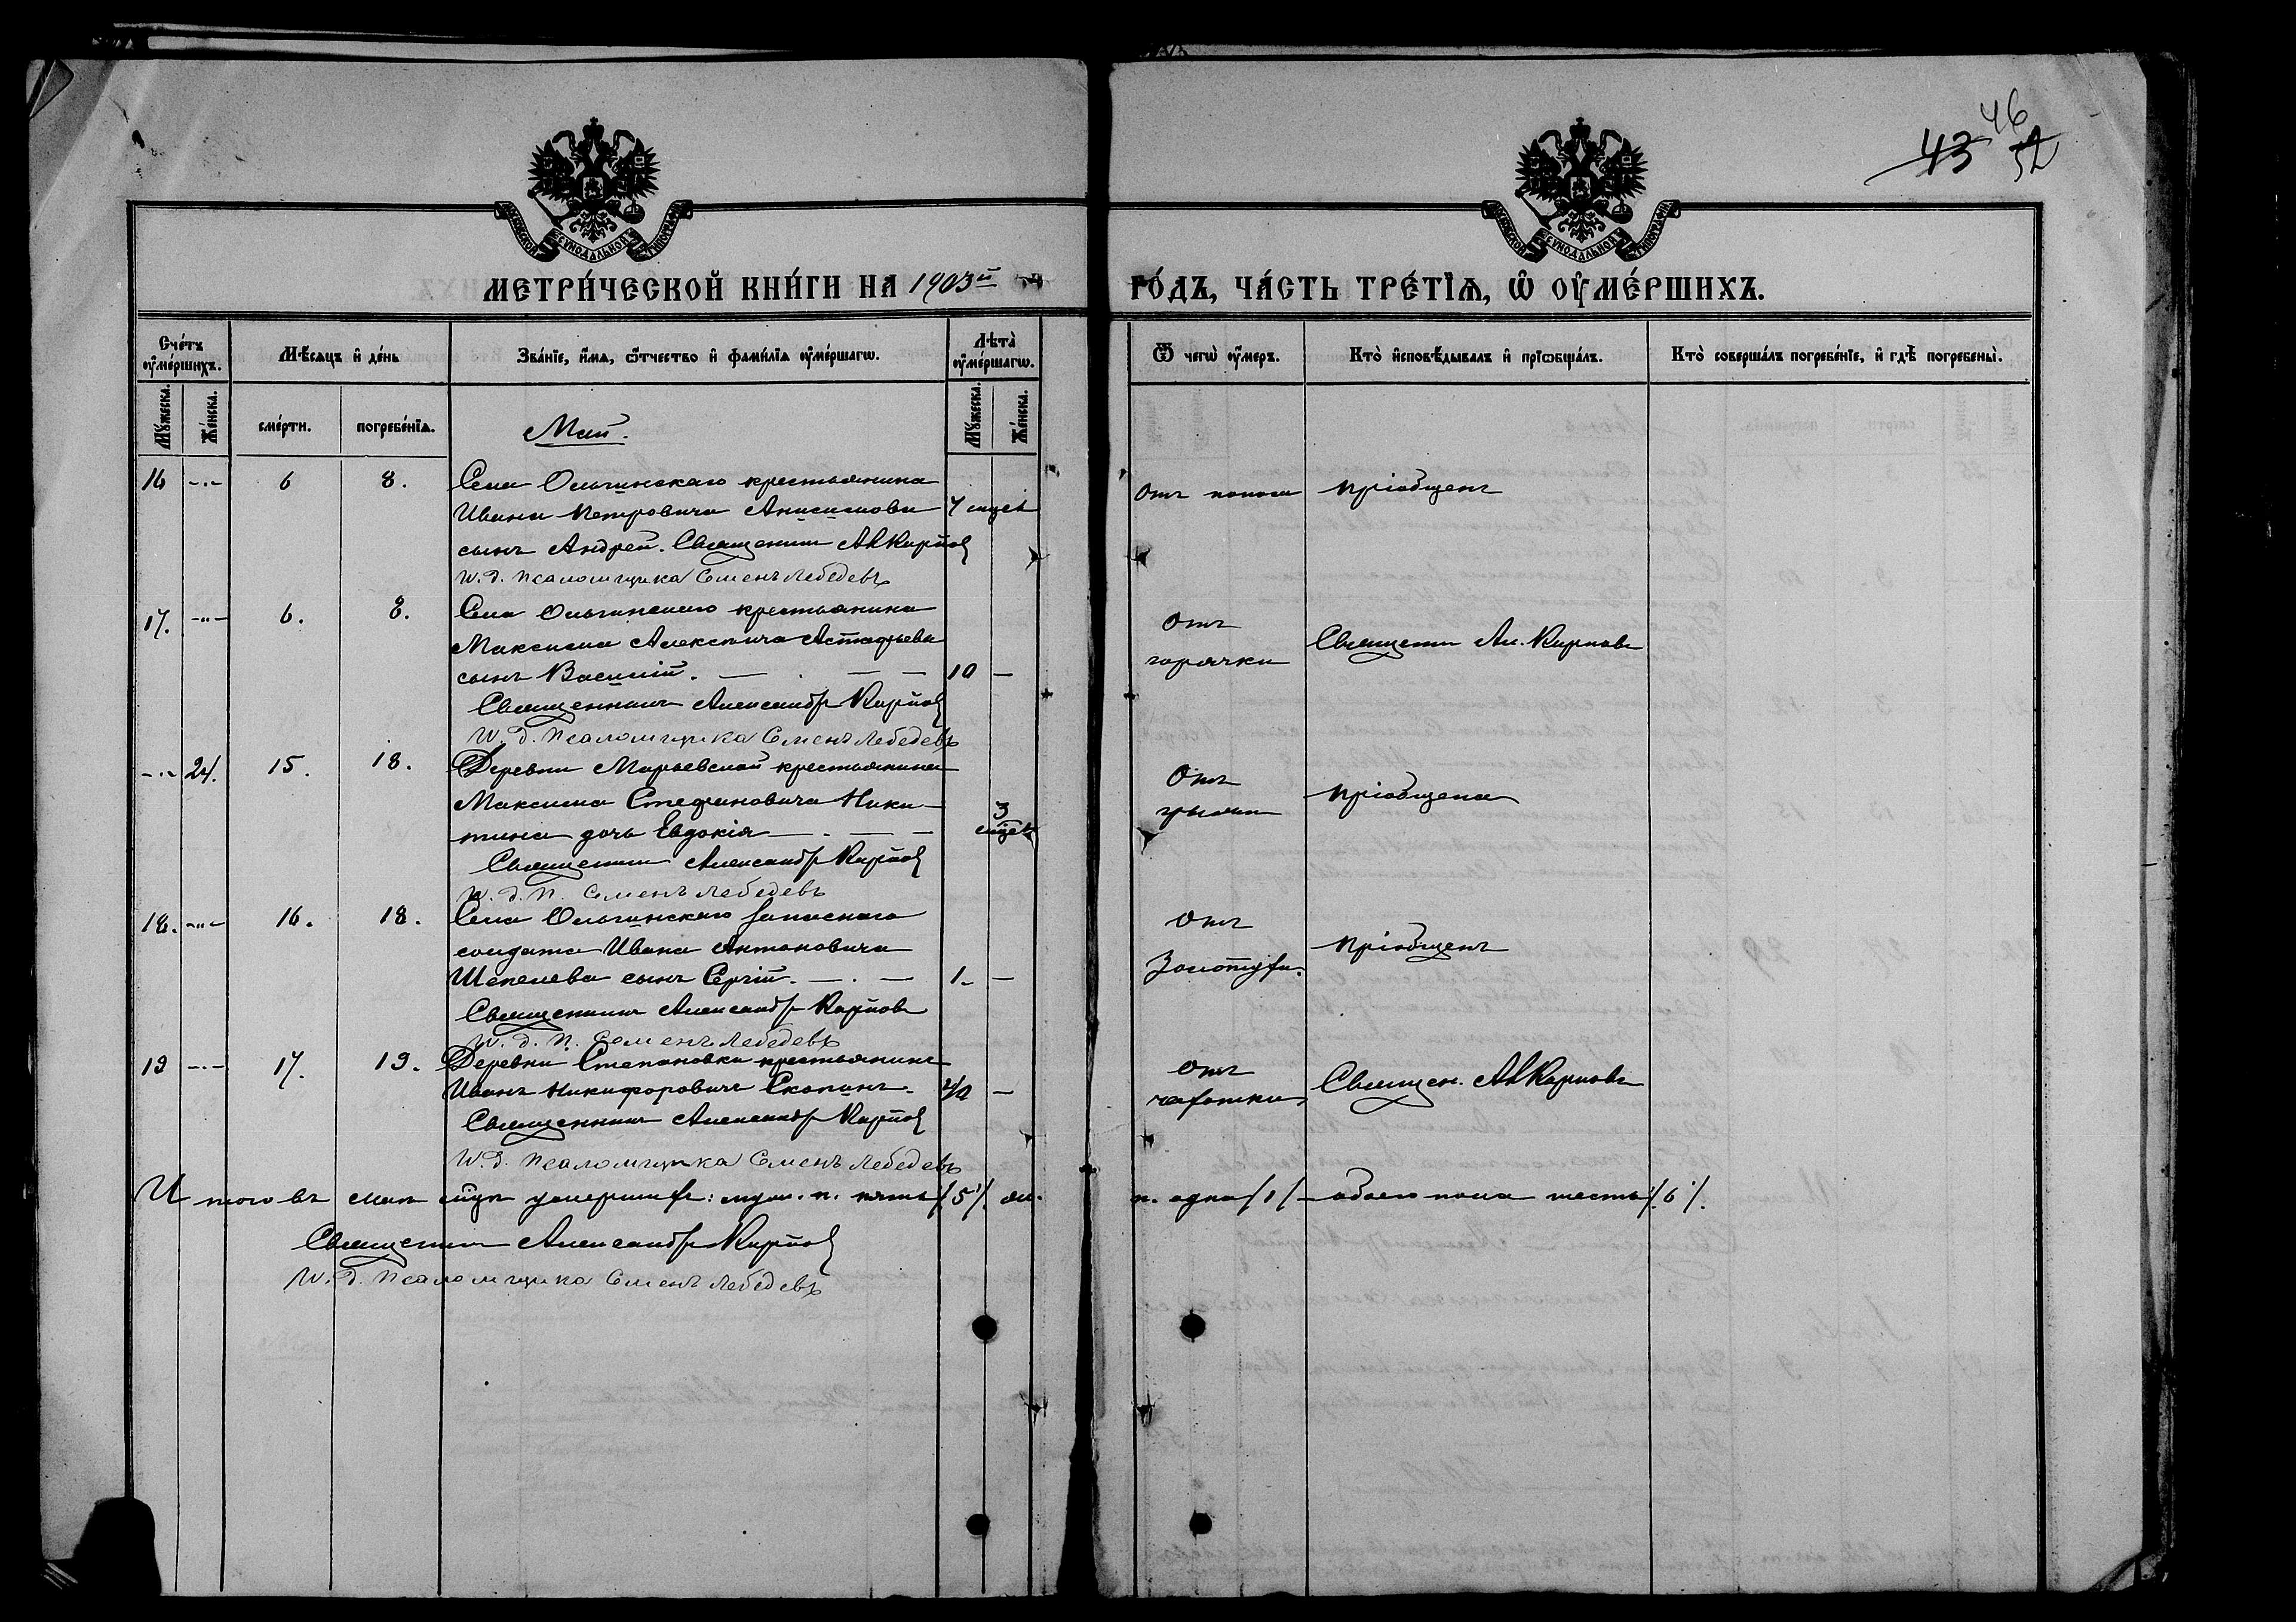 43 46 52
МОСКОВСКОЙ СΥНОДАЛЬНОЙ ТИПОГРАФІИ
МОСКОВСКОЙ СΥНОДАЛЬНОЙ ТИПОГРАФІИ
МЕТРИ́ЧЕСКОЙ КНИ́ГИ НА 1903й
ГО́ДЪ, ЧА́СТЬ ТРЕ́ТІѦ, Ѡ҆ ОУ҆МЕ́РШИХЪ.
Сче́тъ оу҆ме́ршихъ.
Мѣ́сяцъ и҆ де́нь
Зва́нїе, и҆́мѧ, ѻ҆́тчество и҆ фами́лїѧ оу҆ме́ршагѡ.
Лѣ̑та̀ оу҆ме́ршагѡ.
Ѿ чегѡ̀ оу҆́меръ.
Кто̀ и҆сповѣ́дывалъ и҆ прїѡбща́лъ.
Кто̀ соверша́лъ погребе́нїе, и҆ гдѣ̀ погребены̀.
Мꙋ́жеска.
Же́нска.
сме́рти.
погребе́нїѧ.
Мꙋ́жеска.
Же́нска.
Май.
16 -"- 6 8. Села Ольгинскаго крестьянина
Ивана Петровича Анисимова
сынъ Андрей. Священникъ Ал Карпов
И. д. псаломщика Семенъ Лебедевъ
отъ поноса пріобщенъ
17. -"- 6. 8. Села Ольгинскаго крестьянина
Максима Алексѣевича Астафьева
сынъ Василій. — . — — 10 —
Священникъ Александръ Карпов
И. д. псаломщика Семенъ Лебедевъ
отъ
горячки Священникъ Ал. Карповъ
-"- 24. 15. 18. Деревни Марьевской крестьянина
Максима Стефановича Ники-
тина дочь Евдокія — . — — 3
Священникъ Александръ Карпов
И. д. п. Семенъ Лебедевъ
Отъ
грыжи пріобщена
18. -"- 16. 18. Села Ольгинскаго запаснаго
солдата Ивана Антоновича
Шепелева сынъ Сергій. — . — 1. —
Священникъ Александръ Карповъ
И. д. п. Семенъ Лебедевъ
отъ
Золотухи. пріобщенъ
19 -"- 17. 19. Деревни Степановки крестьянинъ
Иванъ Никифоровичъ Скопинъ. 40 —
Священникъ Александръ Карпов
И. д. псаломщика Семенъ Лебедевъ
отъ
чахотки Священ. Ал Карповъ
Итого въ маѣ мцѣ умершихъ: муж. п. пять /5/. жен. п. одна /1/ — обоего пола шесть /6/.
Священникъ Александръ Карпов
И. д. псаломщика Семенъ Лебедевъ